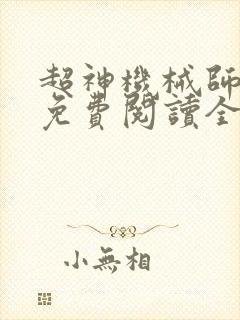 超神機械師
免費閱讀全
小無相